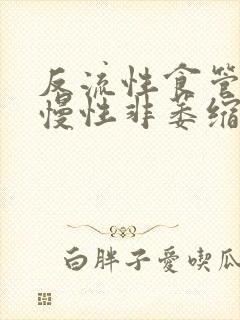 反流性食管
慢性非萎缩
白胖子愛喫瓜